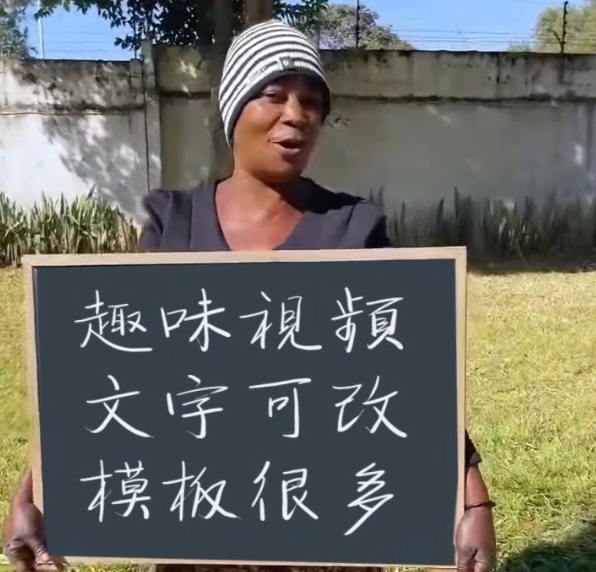 趣味視頻
文字可改
模板很多